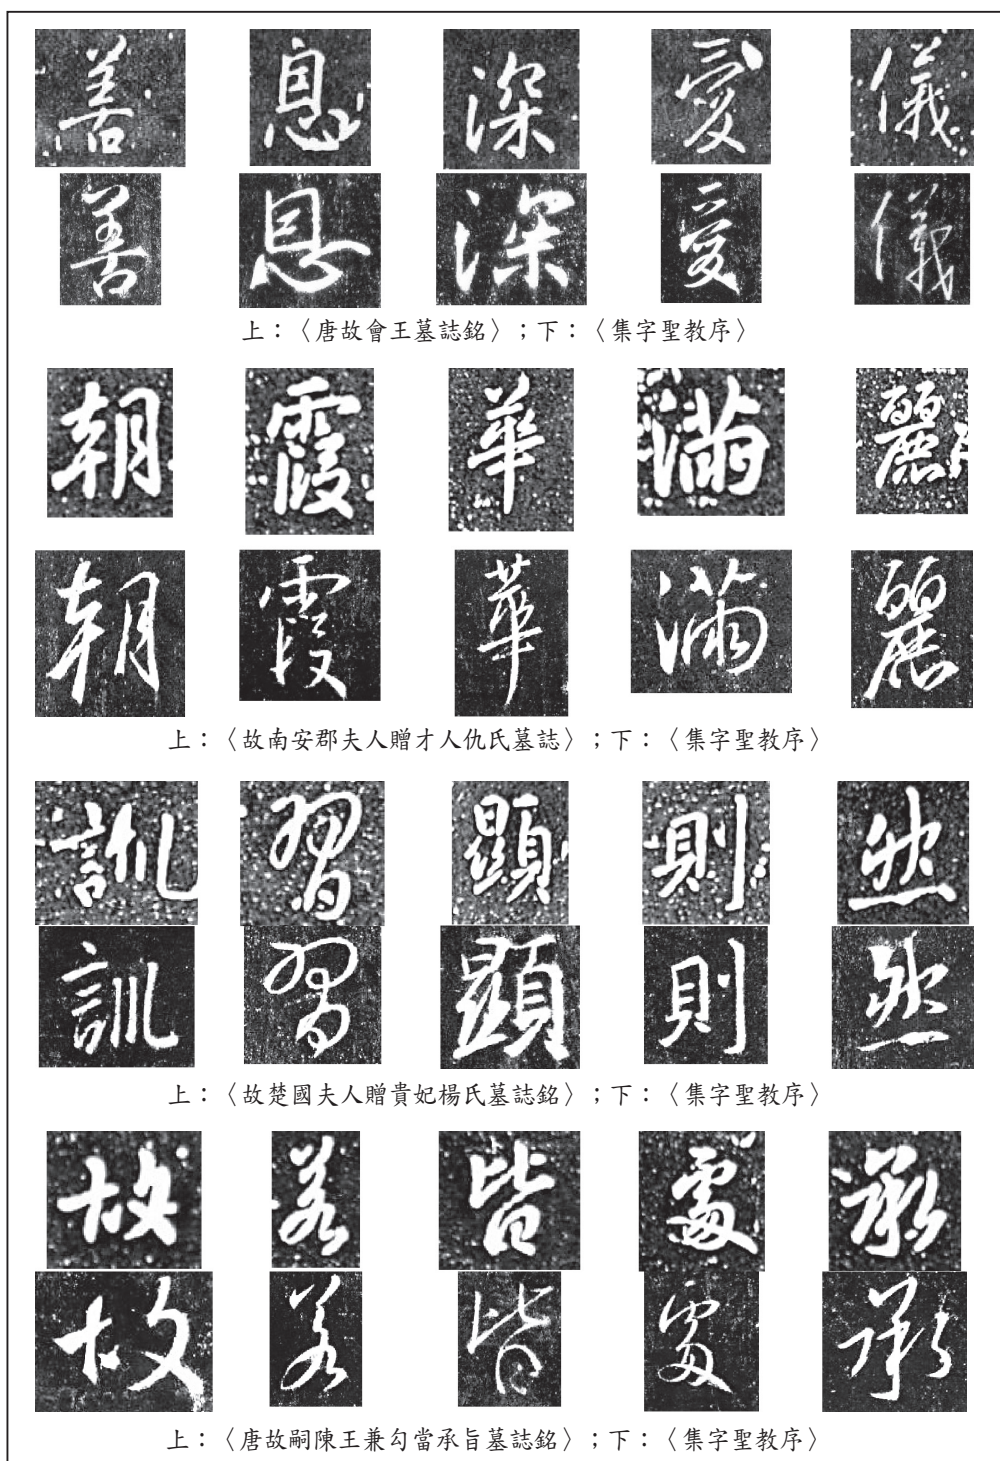 善 息 深 愛 儀
善 息 深 愛 儀
上：〈唐故會王墓誌銘〉；下：〈集字聖教序〉
朝 霞 華 滿 麗
朝 霞 華 滿 麗
上：〈故南安郡夫人贈才人仇氏墓誌〉；下：〈集字聖教序〉
訓 習 顯 則 然
訓 習 顯 則 然
上：〈故楚國夫人贈貴妃楊氏墓誌銘〉；下：〈集字聖教序〉
故 若 皆 處 承
故 若 皆 處 承
上：〈唐故嗣陳王兼勾當承旨墓誌銘〉；下：〈集字聖教序〉